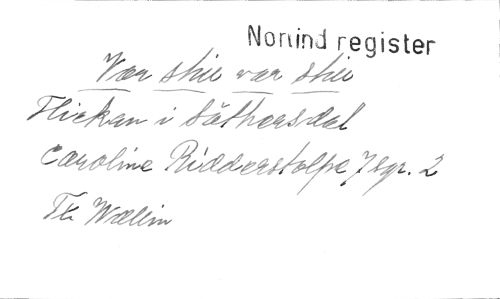 Nomind register
Vær stil vær stil
Flickan i Säthersdal
Caroline Ridderstolpe 7 sgr. 2
Th Wallin